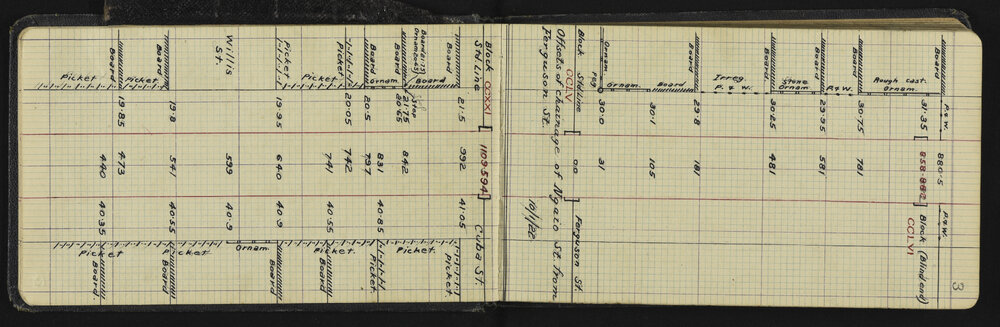 3
P. & W. 880·5 P. & W.
31·35 [858·882] Block (Blind end)
CCLVI
Rough Cast.
Ornam.
Board 30·75 781
P. & W.
Board 29·95 581
Stone
Ornam
Board 30·25 481
Irreg.
P. & W.
Board 29·8 181
Board
30·1 105
Ornam.
Ornam. Peg 30·0 31
Block Std Line 0·0 Ferguson St.
CCLV
Offsets & chainage of Ngaio St. from
Ferguson St. 19/1/22
Block CCXXI [1109·594] Cuba St.
Std. Line
21·5 992 41·05
Board Picket.
Board (2·17)
Ornam (20·65)
Board 21·75 Step 842
20·65
Picket.
Ornam. 831 40·85
Board 20·5 797 Board
Picket 20·05 742 Picket.
741 40·55
Picket Picket.
Picket 19·5 640 40·9 Board
Ornam.
Willis
St. 599 40·9
Board 19·8 541 40·55 Picket
Board
Picket
Board 19·85 473
440 40·35 Picket
Board
Picket